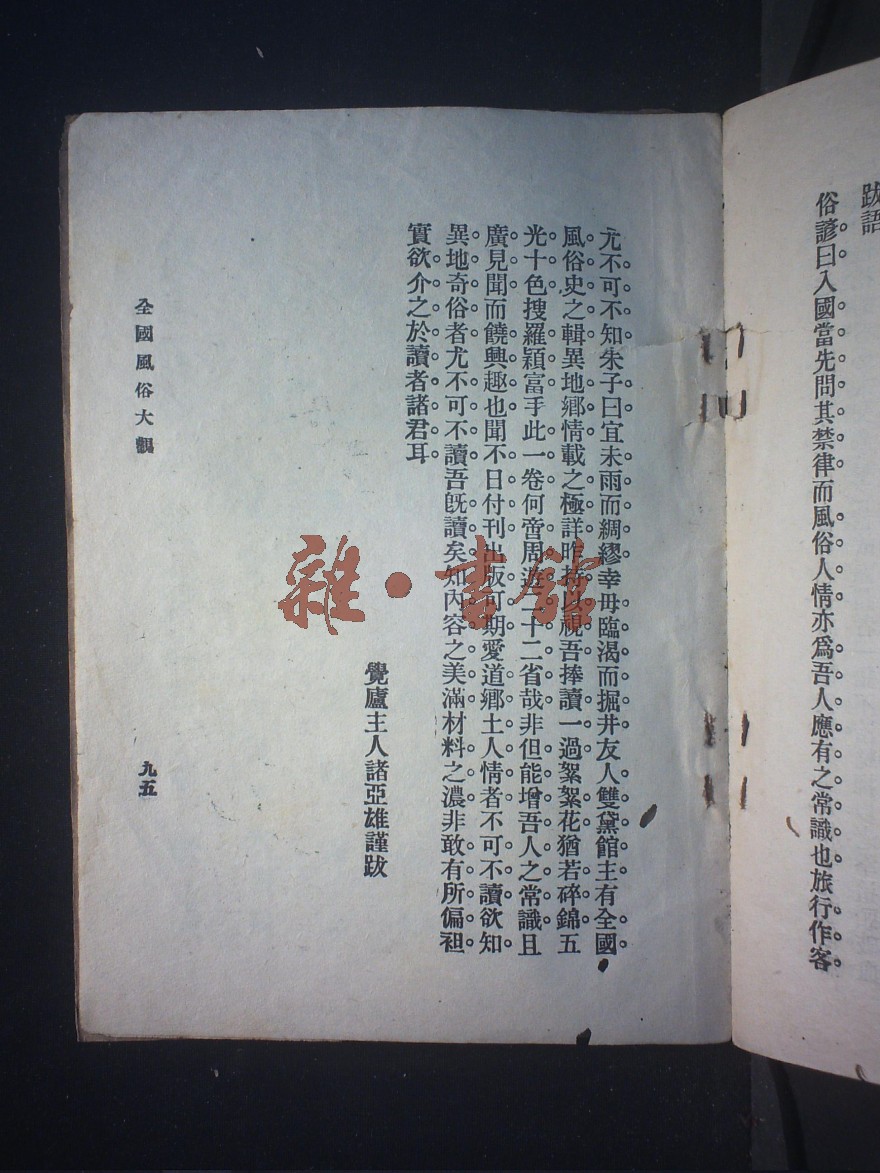 跋語
俗諺曰入國當先問其禁律而風俗人情亦爲吾人應有之常識也旅行作客
尤不可不知朱子曰宜未雨而綢繆幸毋臨渴而掘井友人雙黛館主有全國
風俗史之輯異地鄉情載之極詳昨持以視吾捧讀一過絮絮花猶若碎錦五
光十色搜羅穎富手此一卷何啻周遊二十二省哉非但能增吾人之常識且
廣見聞而饒興趣也聞不日付刊出版可期愛道鄉土人情者不可不讀欲知
異地奇俗者尤不可不讀吾旣讀矣知內容之美滿材料之濃非敢有所偏袒
實欲介之於讀者諸君耳
覺廬主人諸亞雄謹跋
全國風俗大觀
九五
雜·書館